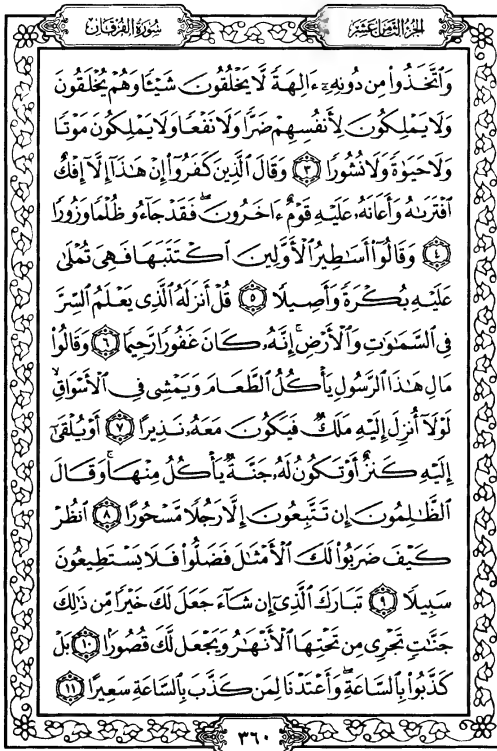 الجزء الثامن عشر
سورة الفرقان
وَٱتَّخَذُوا۟ مِن دُونِهِۦٓ ءَالِهَةً لَّا يَخْلُقُونَ شَيْـًٔا وَهُمْ يُخْلَقُونَ
وَلَا يَمْلِكُونَ لِأَنفُسِهِمْ ضَرًّا وَلَا نَفْعًا وَلَا يَمْلِكُونَ مَوْتًا
وَلَا حَيَوٰةً وَلَا نُشُورًا ٣ وَقَالَ ٱلَّذِينَ كَفَرُوٓا۟ إِنْ هَٰذَآ إِلَّآ إِفْكٌ
ٱفْتَرَىٰهُ وَأَعَانَهُۥ عَلَيْهِ قَوْمٌ ءَاخَرُونَ ۖ فَقَدْ جَآءُو ظُلْمًا وَزُورًا
٤ وَقَالُوٓا۟ أَسَٰطِيرُ ٱلْأَوَّلِينَ ٱكْتَتَبَهَا فَهِىَ تُمْلَىٰ
عَلَيْهِ بُكْرَةً وَأَصِيلًا ٥ قُلْ أَنزَلَهُ ٱلَّذِى يَعْلَمُ ٱلسِّرَّ
فِى ٱلسَّمَٰوَٰتِ وَٱلْأَرْضِ ۚ إِنَّهُۥ كَانَ غَفُورًا رَّحِيمًا ٦ وَقَالُوا۟
مَالِ هَٰذَا ٱلرَّسُولِ يَأْكُلُ ٱلطَّعَامَ وَيَمْشِى فِى ٱلْأَسْوَاقِ ۙ
لَوْلَآ أُنزِلَ إِلَيْهِ مَلَكٌ فَيَكُونَ مَعَهُۥ نَذِيرًا ٧ أَوْ يُلْقَىٰٓ
إِلَيْهِ كَنزٌ أَوْ تَكُونُ لَهُۥ جَنَّةٌ يَأْكُلُ مِنْهَا ۚ وَقَالَ
ٱلظَّٰلِمُونَ إِن تَتَّبِعُونَ إِلَّا رَجُلًا مَّسْحُورًا ٨ ٱنظُرْ
كَيْفَ ضَرَبُوا۟ لَكَ ٱلْأَمْثَٰلَ فَضَلُّوا۟ فَلَا يَسْتَطِيعُونَ
سَبِيلًا ٩ تَبَارَكَ ٱلَّذِىٓ إِن شَآءَ جَعَلَ لَكَ خَيْرًا مِّن ذَٰلِكَ
جَنَّٰتٍ تَجْرِى مِن تَحْتِهَا ٱلْأَنْهَٰرُ وَيَجْعَل لَّكَ قُصُورًۢا ١٠ بَلْ
كَذَّبُوا۟ بِٱلسَّاعَةِ ۖ وَأَعْتَدْنَا لِمَن كَذَّبَ بِٱلسَّاعَةِ سَعِيرًا ١١
٣٦٠